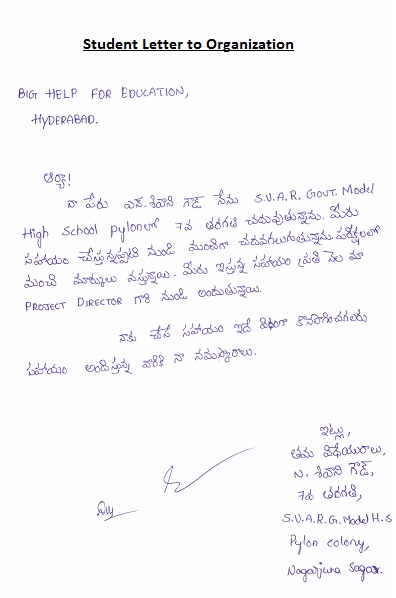 Student Letter to Organization
BIG HELP FOR EDUCATION,
HYDERABAD.
ఆర్యా!
నా పేరు ఎన్.శివాని గౌడ్ నేను S.V.A.R. GOVT. Model
High School pylonలో 7వ తరగతి చదువుతున్నాను. మీరు
సహాయం చేస్తున్నప్పటి నుండి మంచిగా చదవగలుగుతున్నాను. పరీక్షలలో
మంచి మార్కులు వస్తున్నాయి. మీరు ఇస్తున్న సహాయం ప్రతి నెల మా
PROJECT DIRECTOR గారి నుండి అందుతున్నాయి.
నాకు చేసే సహాయం ఇదే విధంగా కొనసాగించగలరు
సహాయం అందిస్తున్న వారికి నా నమస్కారాలు.
ఇట్లు,
తమ విధేయురాలు,
N. శివాని గౌడ్,
7వ తరగతి,
S.V.A.R.G.Model H.S
Pylon colony,
Nagarjuna Sagar.